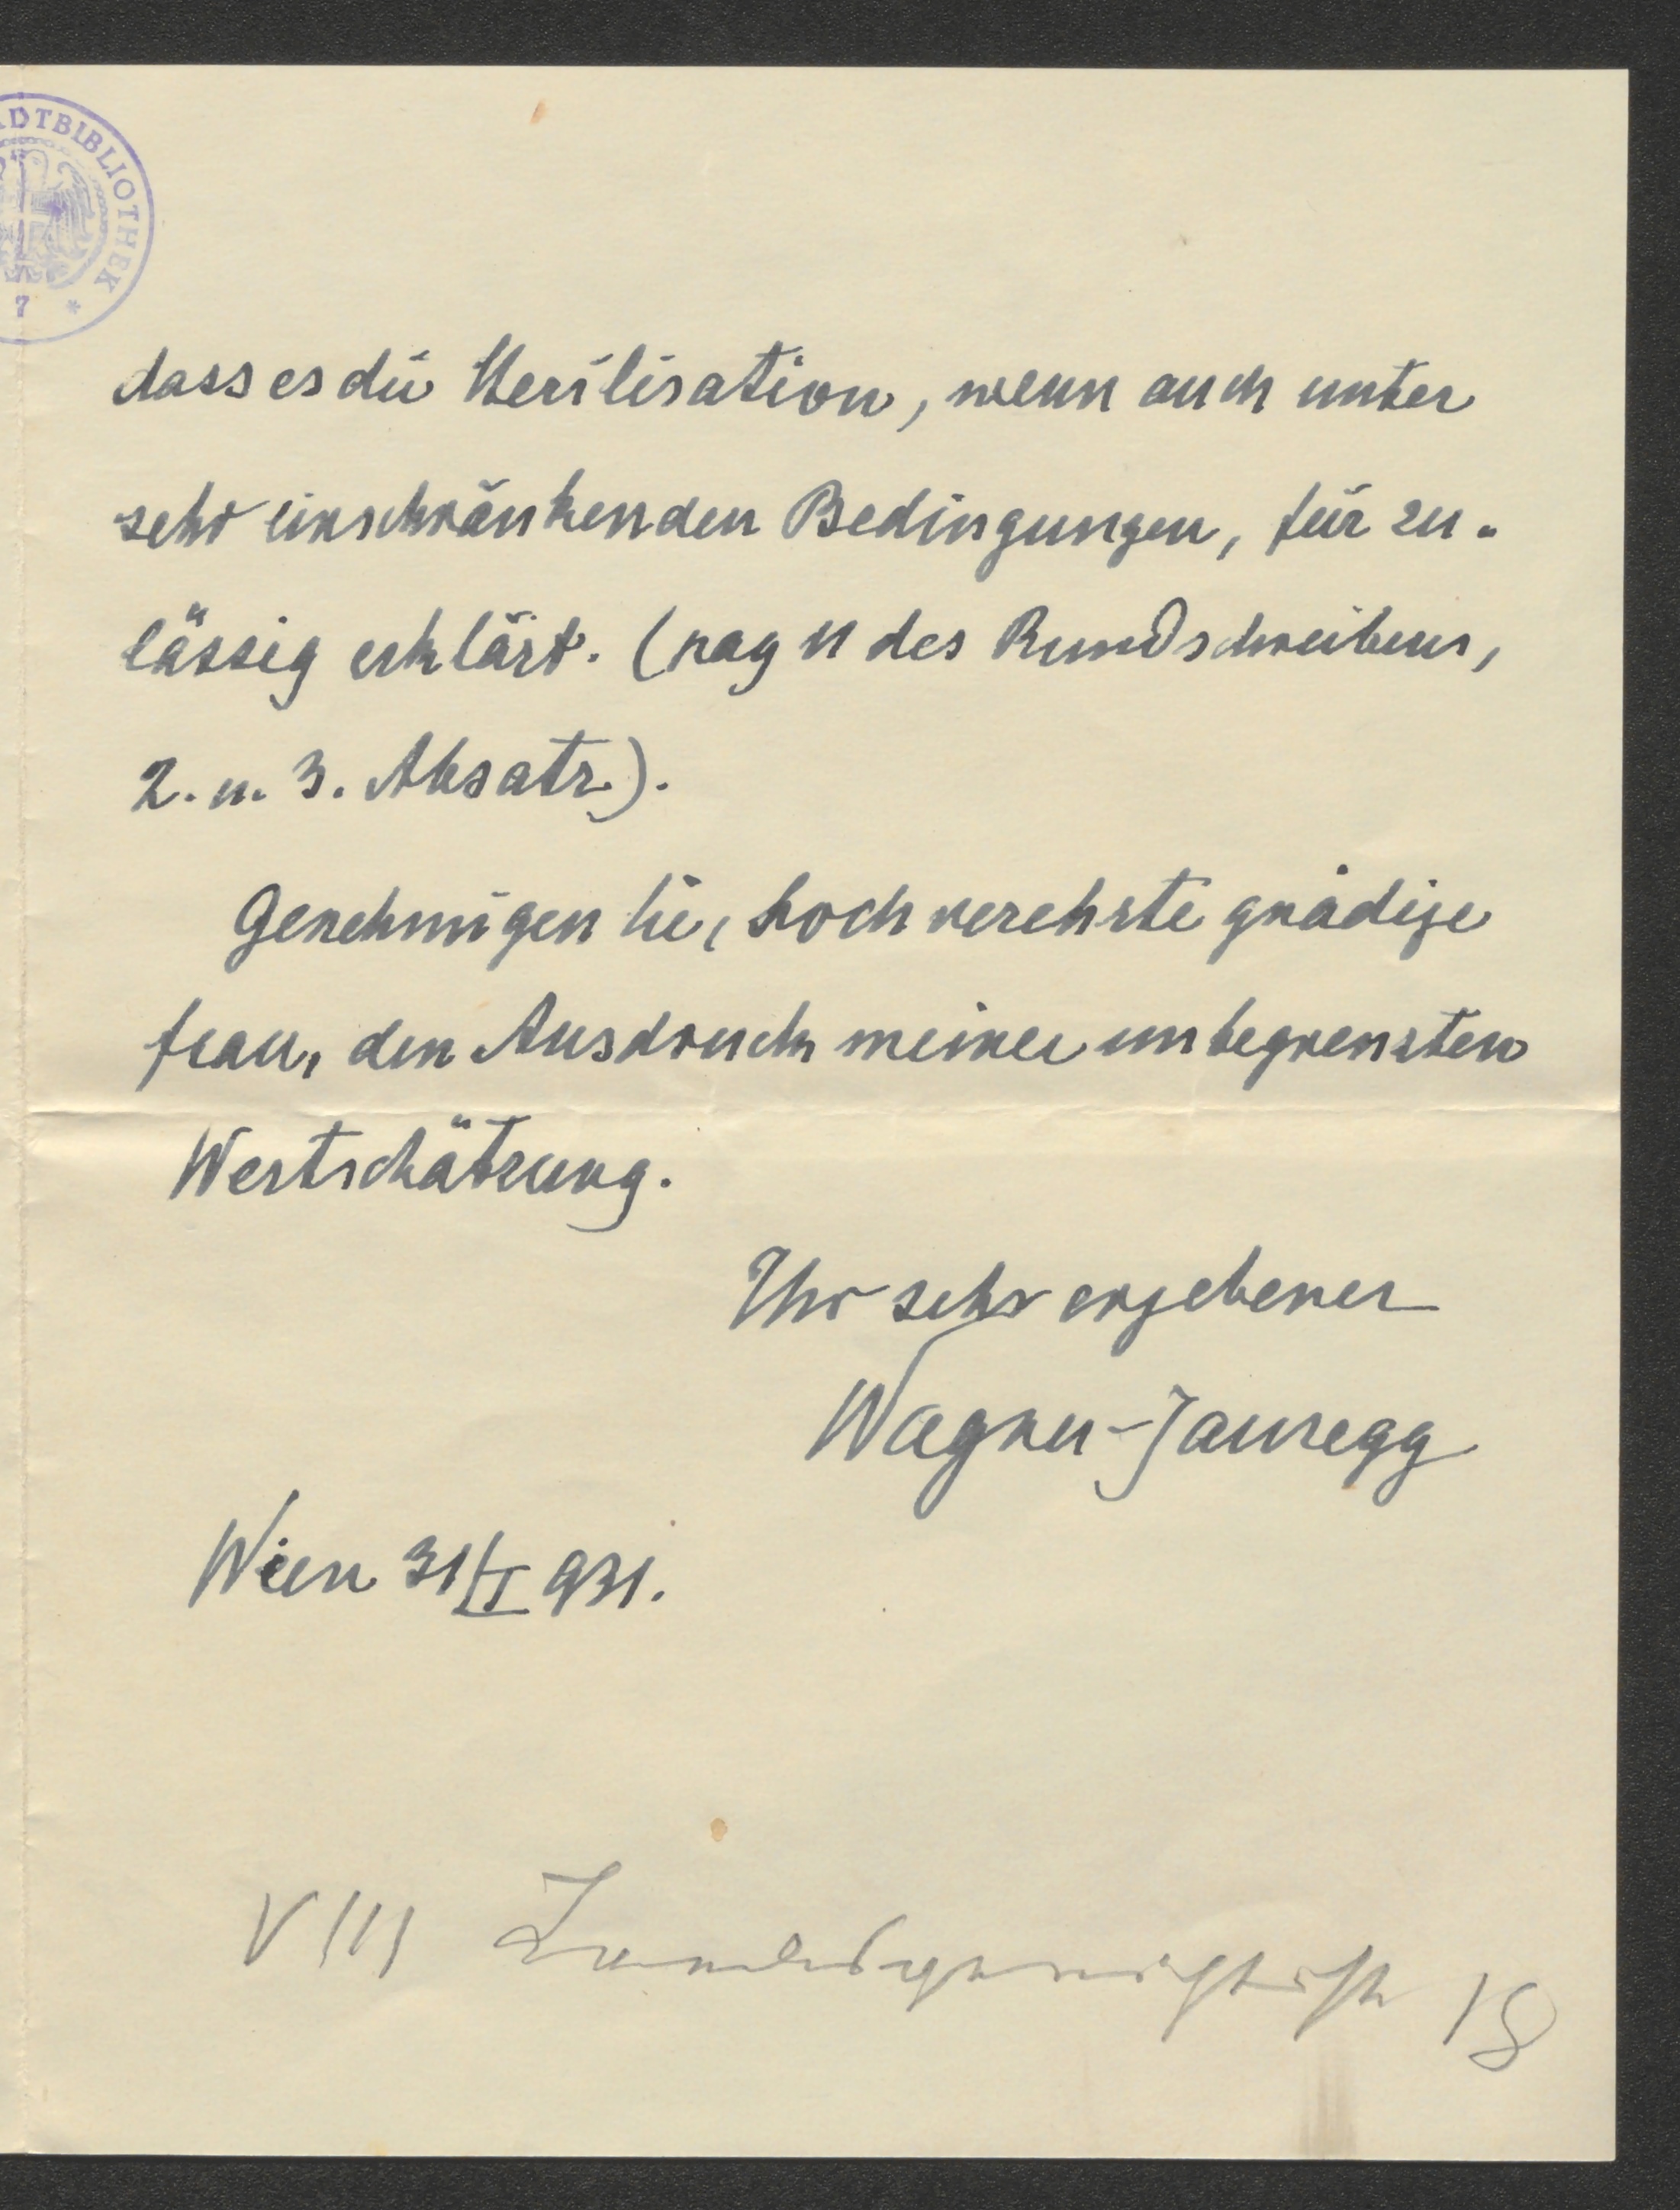 ADTBIBLIOTHEK
7 *
dass es die Sterilisation, wenn auch unter
sehr einschränkenden Bedingungen, für zu-
lässig erklärt. (pag 11 des Rundschreibens,
2. u. 3. Absatz).
Genehmigen Sie, hochverehrte gnädige
Frau, den Ausdruck meiner unbegrenzten
Wertschätzung.
Ihr sehr ergebener
Wagner-Jauregg
Wien 31/I 931.
VIII Landesgerichtsstr 18